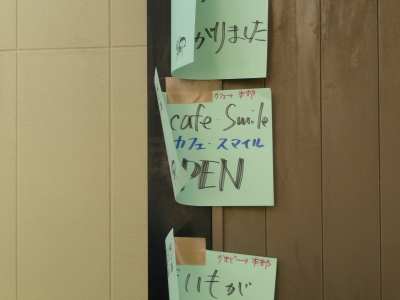 がりました
カフェ→本部
cafe Smile
カフェ・スマイル
PEN
いもが